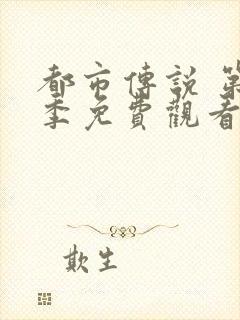 都市傳說 第
季免費觀看
欺生